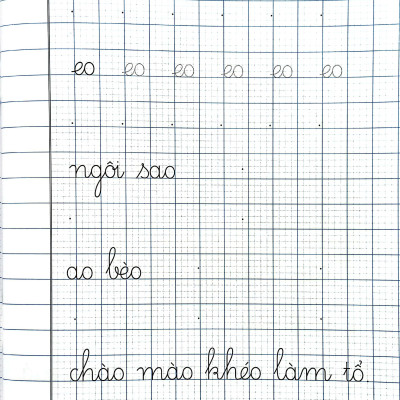 eo eo eo eo eo eo
ngôi sao
ao bèo
chào mào khéo làm tổ.